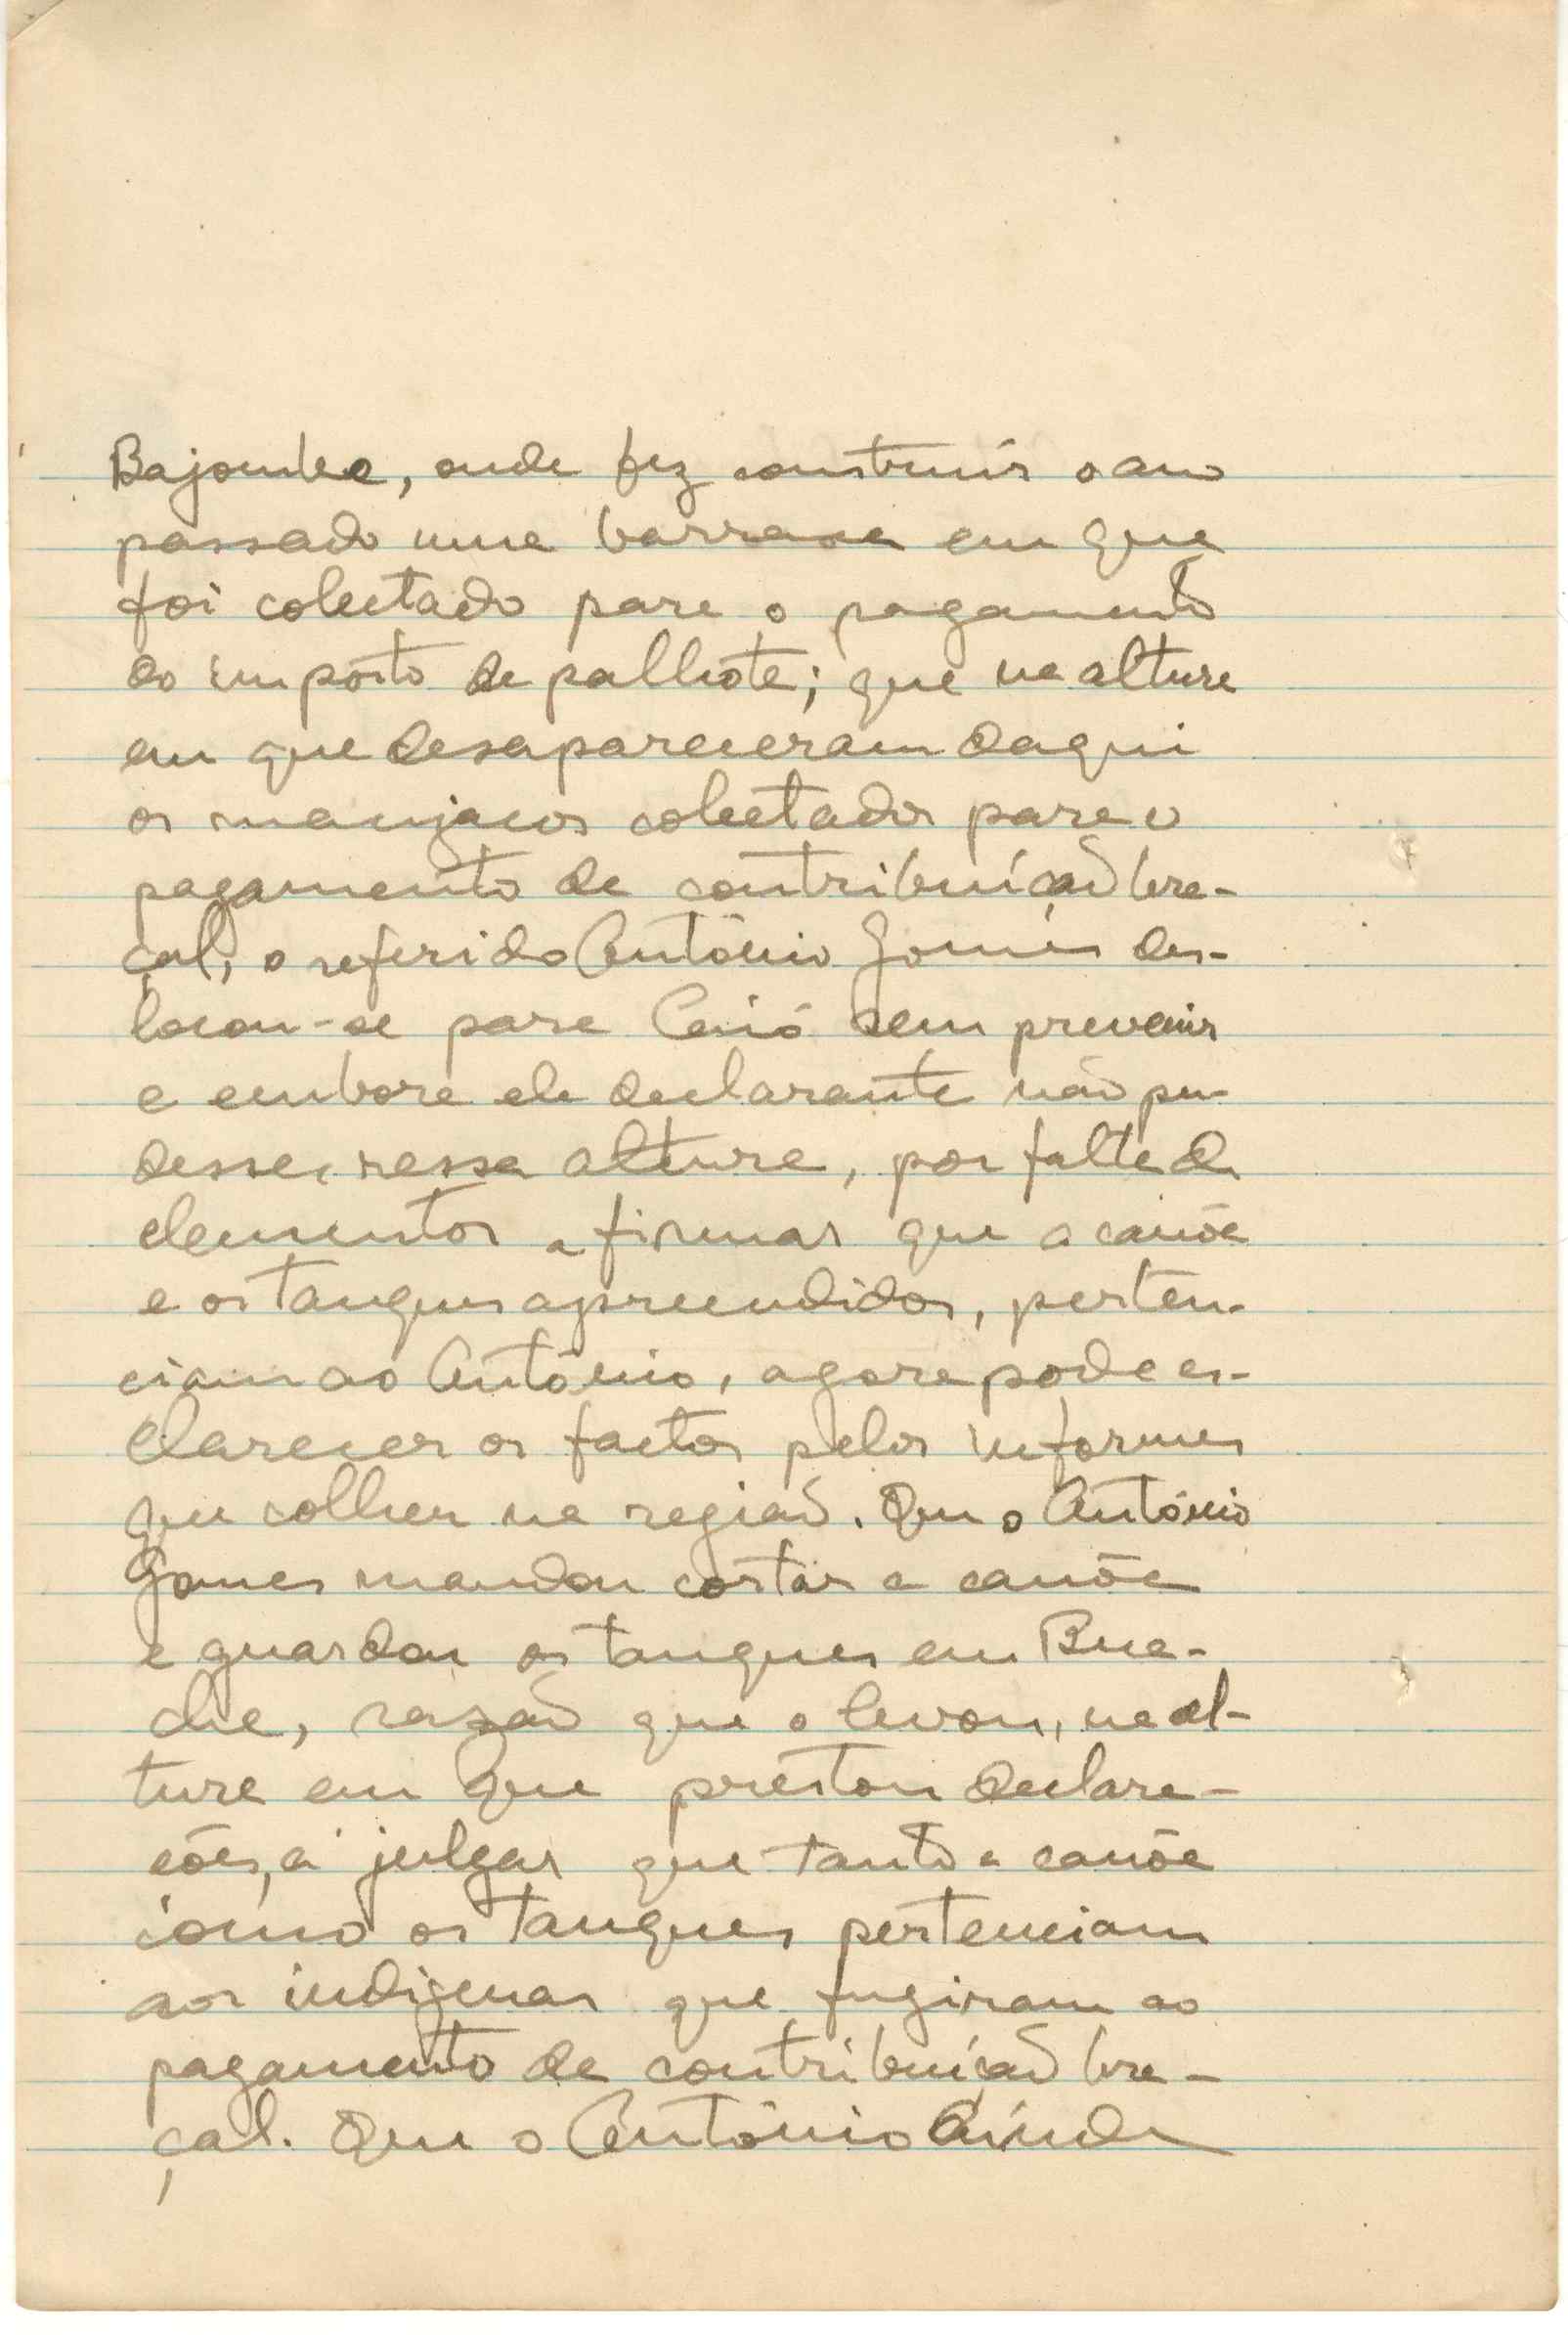 Bajombe, onde fez construir o ano
passado uma barraca em que
foi colectado para o pagamento
do imposto de palhota; que na altura
em que desapareceram daqui
os manjacos colectados para o
pagamento de contribuição bra-
çal, o referido António Gomes des-
locou-se para Caió sem prevenir
e embora ele declarante não pu-
desse, nessa altura, por falta de
elementos afirmar que a canôa
e os tanques apreendidos, perten-
ciam ao António, agora pode es-
clarecer os factos pelos informes
que colheu na região. Que o António
Gomes mandou cortar a canôa
e guardou os tanques em Bua-
che, razão que o levou, na al-
tura em que prestou declara-
ções, a julgar que tanto a canôa
como os tanques pertenciam
aos indígenas que fugiram ao
pagamento de contribuição bra-
çal. Que o António ainda